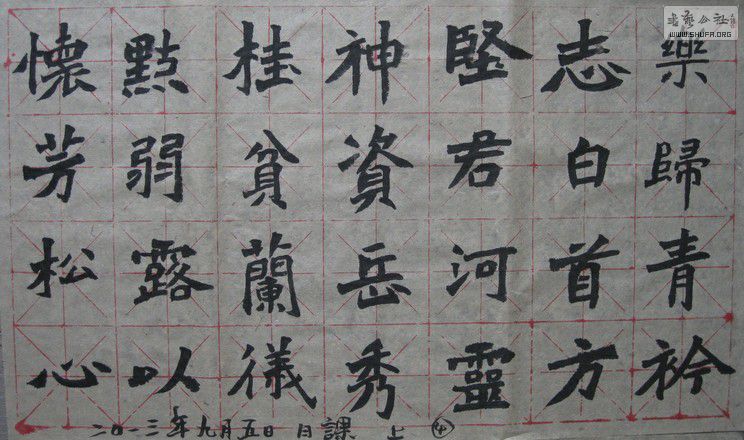 樂歸青衿
志白首方
堅君河靈
神資岳秀
桂貧蘭儀
點弱露以
懷芳松心
二〇一三年九月五日 日課 上 ④
書藝公社
WWW.SHUFA.ORG